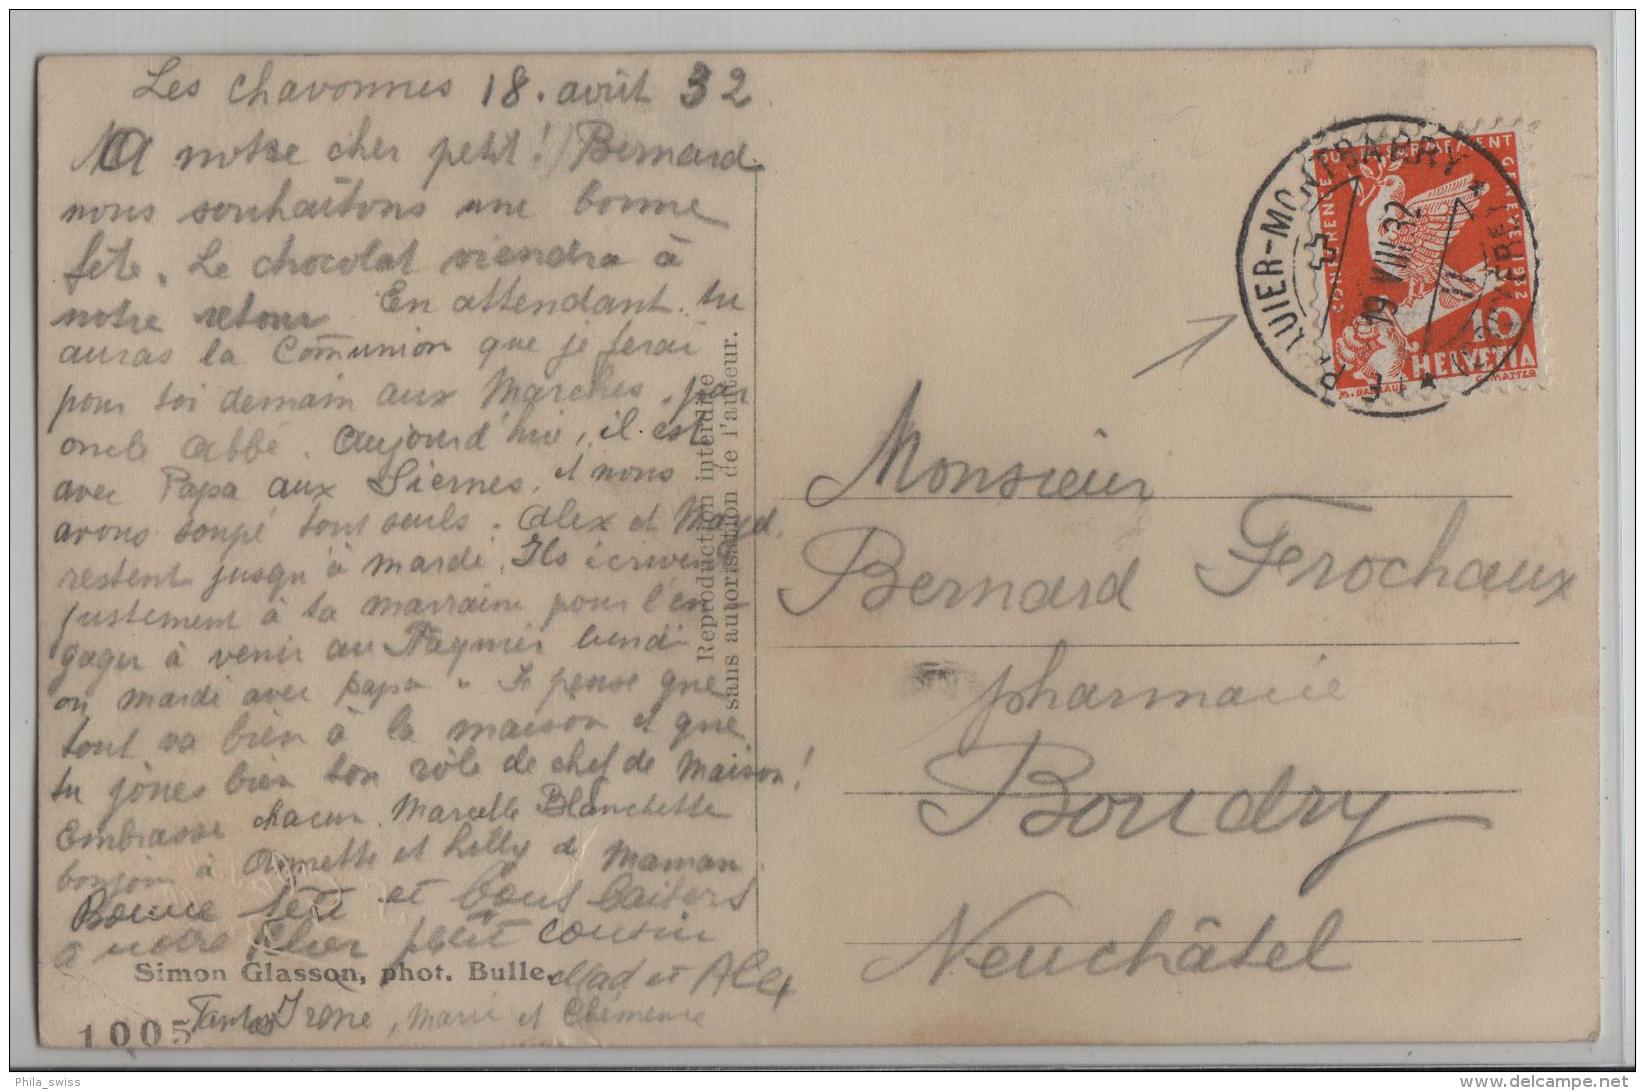 Les Chavonnes 18. août 32
A notre cher petit! Bernard
nous souhaitons une bonne
fête. Le chocolat viendra à
notre retour En attendant. tu
auras la Communion que je ferai
pour toi demain aux Marches. par
oncle abbé. Aujourd'hui, il est
avec Papa aux Siernes, et nous
avons soupé tout seuls. Alex et Mayd.
restent jusqu'à mardi. Ils écrivent
justement à ta marraine pour l'en-
gager à venir au lundi
ou mardi avec papa. Je pense que
tout va bien à la maison et que
tu joues bien ton rôle de chef de Maison!
Embrasse chacun. Marcelle Blanchette
bonjour à Annette et Lilly de Maman
Bonne fête et bons baisers
à notre cher petit cousin
Mad et Alex
Simon Glasson, phot. Bulle.
Tantes Irène, Marie et Clémence
1005
Reproduction interdite
sans autorisation de l'auteur.
CONFERENCE DU DESARMEMENT GENEVE 1932
10
HELVETIA
M. BARRAUD C. MATTER
19 VIII 32
Monsieur
Bernard Ferochaux
pharmacie
Boudry
Neuchâtel
Phila_swiss
delcampe.net